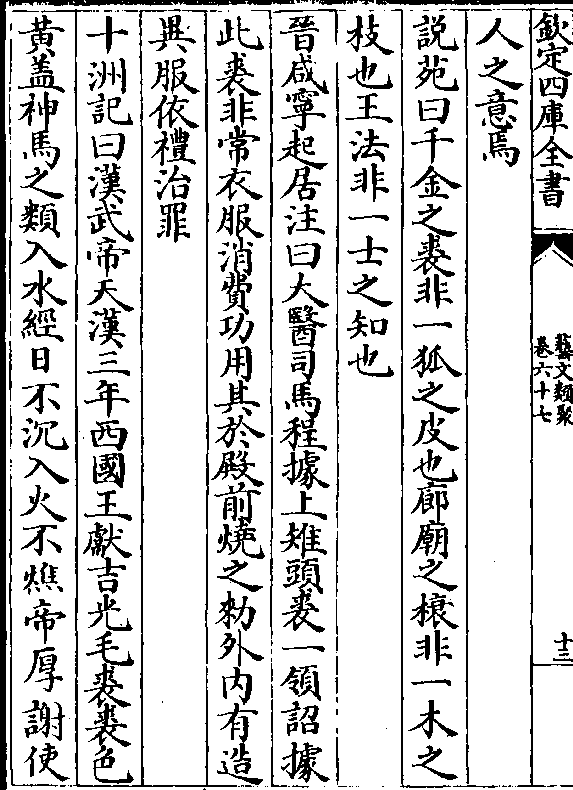 欽定四庫全書
藝文類聚
卷六十七
十三
人之意焉
說苑曰千金之裘非一狐之皮也廊廟之榱非一木之
枝也王法非一士之知也
晉咸寧起居注曰大醫司馬程據上雉頭裘一領詔據
此裘非常衣服消費功用其於殿前燒之勑外内有造
異服依禮治罪
十洲記曰漢武帝天漢三年西國王獻吉光毛裘裘色
黄盖神馬之類入水經日不沉入火不燋帝厚謝使